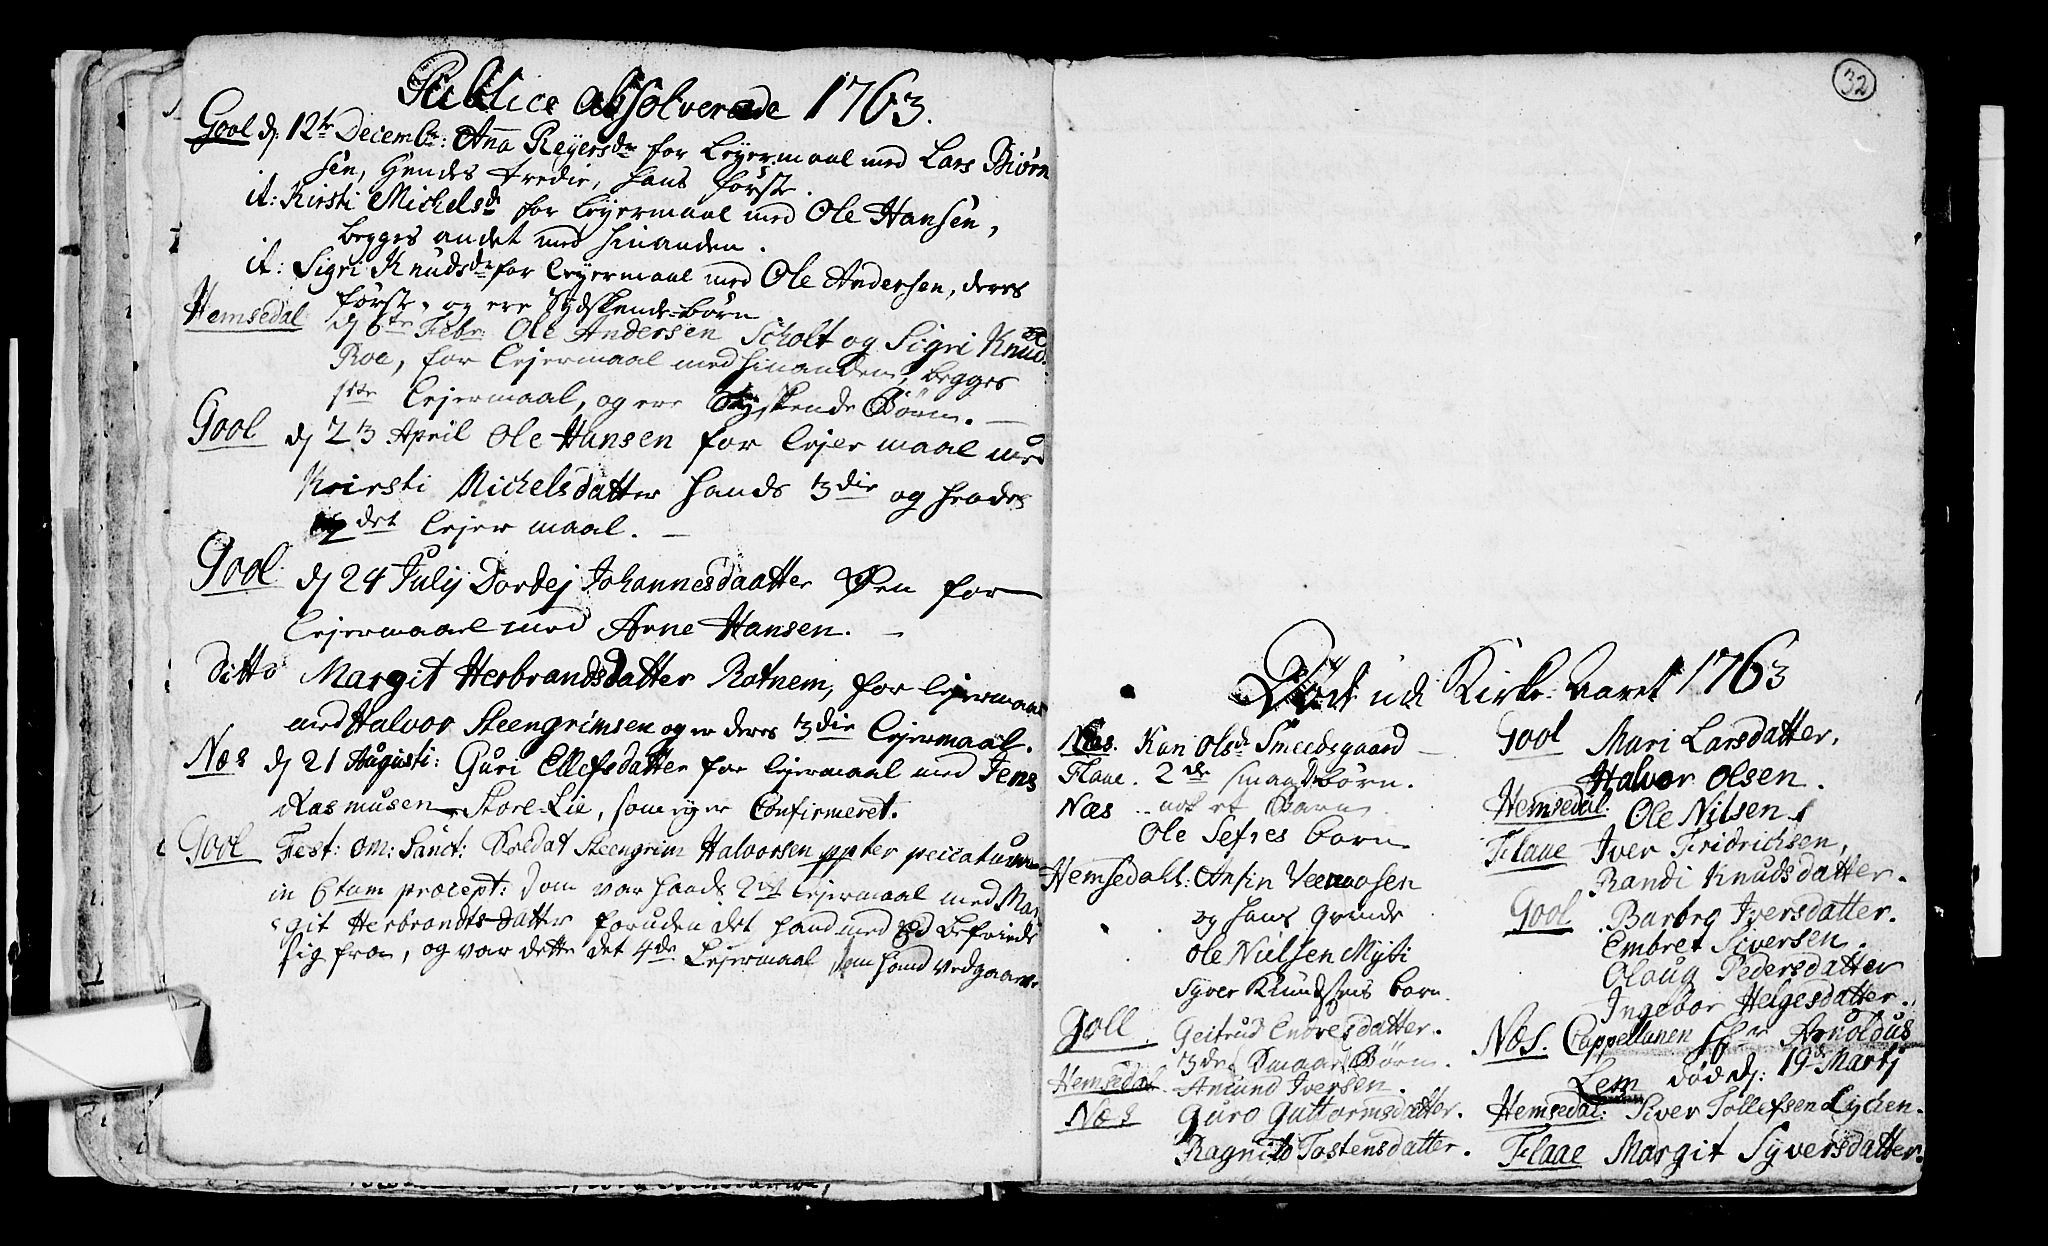 Publice absolverede 1763.
Gool d: 12te Decembr: Anna Reyersdr for Leyermaal med Lars Biørn
sen, hendes tredie, hans første.
it: Kirsti Michelsdr for Leyermaal med Ole Hansen,
begges andet med hinanden.
it: Sigri Knudsdr for Leyermaal med Ole Andersen, deres
første, og ere Sydskende-børn
Hemsedal d 6te Febr: Ole Andersen Scholt og Sigri Knudsdr
Roe, for Lejermaal med hinanden, begges
1ste Lejermaal, og ere Sydskende Børn.
Gool d 23 April Ole Hansen for Lejermaal med
Keirsti Michelsdatter hands 3die og hendes
2det Lejermaal.
Gool d 24 Julij Dordej Johannesdaatter Øen for
Lejermaal med Arne Hansen.
Ditto Margit Herbrandsdatter Rotnem, for Lejermaal
med Halvor Steengrimsen og er deres 3die Lejermaal.
Næs d 21 Augusti: Guri Ellefsdatter for Lejermaal med Jens
Rasmusen Store-Lie, som ej er Confirmeret.
Gool Fest: om: Sanct: Soldat Steengrim Halvorsen ppter peccatum
in 6tum præcept: som var hands 2det Lejermaal med Mar
git Herbrandts-datter foruden det hand med Ed befriede
sig fra, og var dette det 4de Lejermaal som hand vedgaar
32
Død udi Kirke-Aaret 1763
Næs. Kari Olsdr Smedsgaard
Flaae. 2de smaa Børn.
Næs nok et Barn
Ole Sefres barn
Hemsedahl: Anfin Veemosen
og hans Qvinde
Ole Nielsen Myti
Syver Knudsens barn.
Goll Geitrud Endresdatter.
3de Smaa Børn.
Hemsedal Amund Iversen.
Næs Guro Guttormsdatter.
Ragnild Tostensdatter.
Gool Mari Larsdatter.
Halvor Olsen.
Hemsedal. Ole Nilsen
Flaae Iver Fridrichsen,
Randi Knudsdatter.
Gool Barbro Iversdatter.
Embret Siversen.
Olaug Pedersdatter
Ingebor Helgesdatter.
Næs. Cappellanen Hr Arnoldus
Lem død d: 19de Martj
Hemsedal: Siver Tollefsen Lychen.
Flaae Margit Syversdatter.